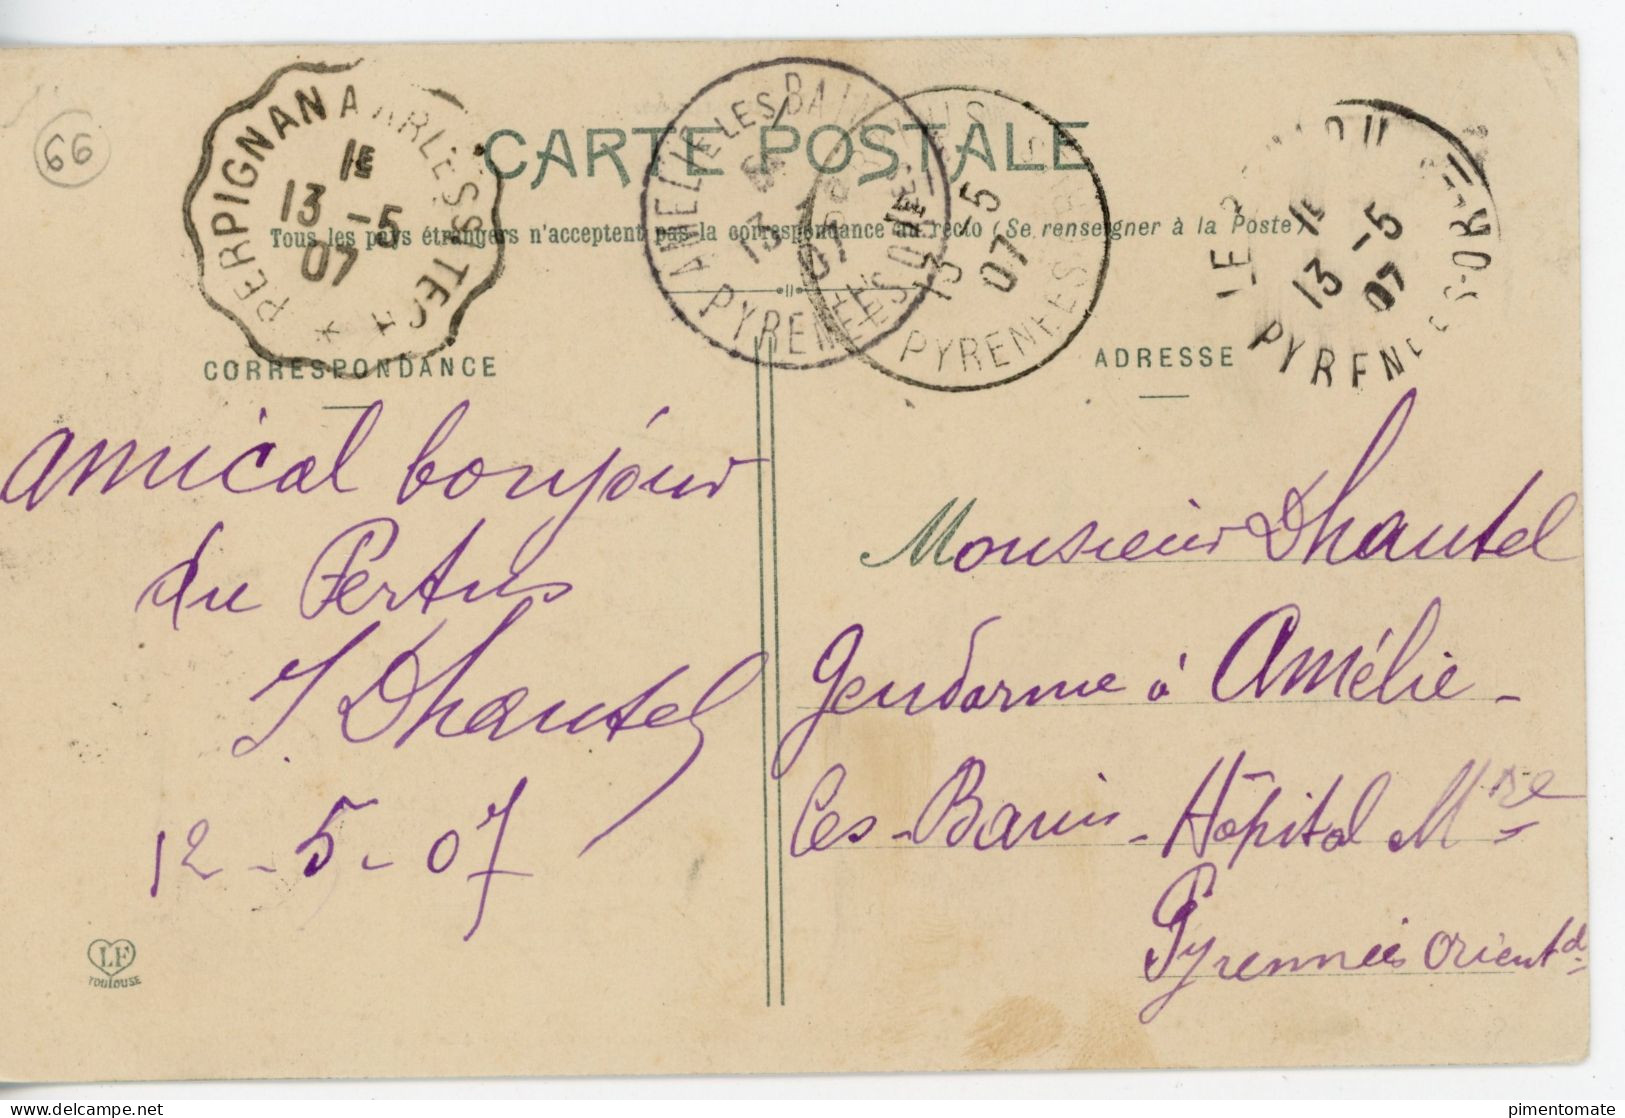 66
CARTE POSTALE
Tous les pays étrangers n'acceptent pas la correspondance au recto (Se renseigner à la Poste)
PERPIGNAN A ARLES S TECH
1E
13 -5
07
AMELIE LES BAINS
13
07
PYRENEES ORLES
1E
13 -5
07
PYRENEES
LE
1E
13 -5
07
PYRENEES-OR
CORRESPONDANCE
ADRESSE
amical bonjour
du Pertus
J Dhautel
12-5-07
LF
TOULOUSE
Monsieur Dhautel
Gendarme à Amélie-
les-Bains-Hôpital Mre
Pyrennées Orient
delcampe.net
pimentomate